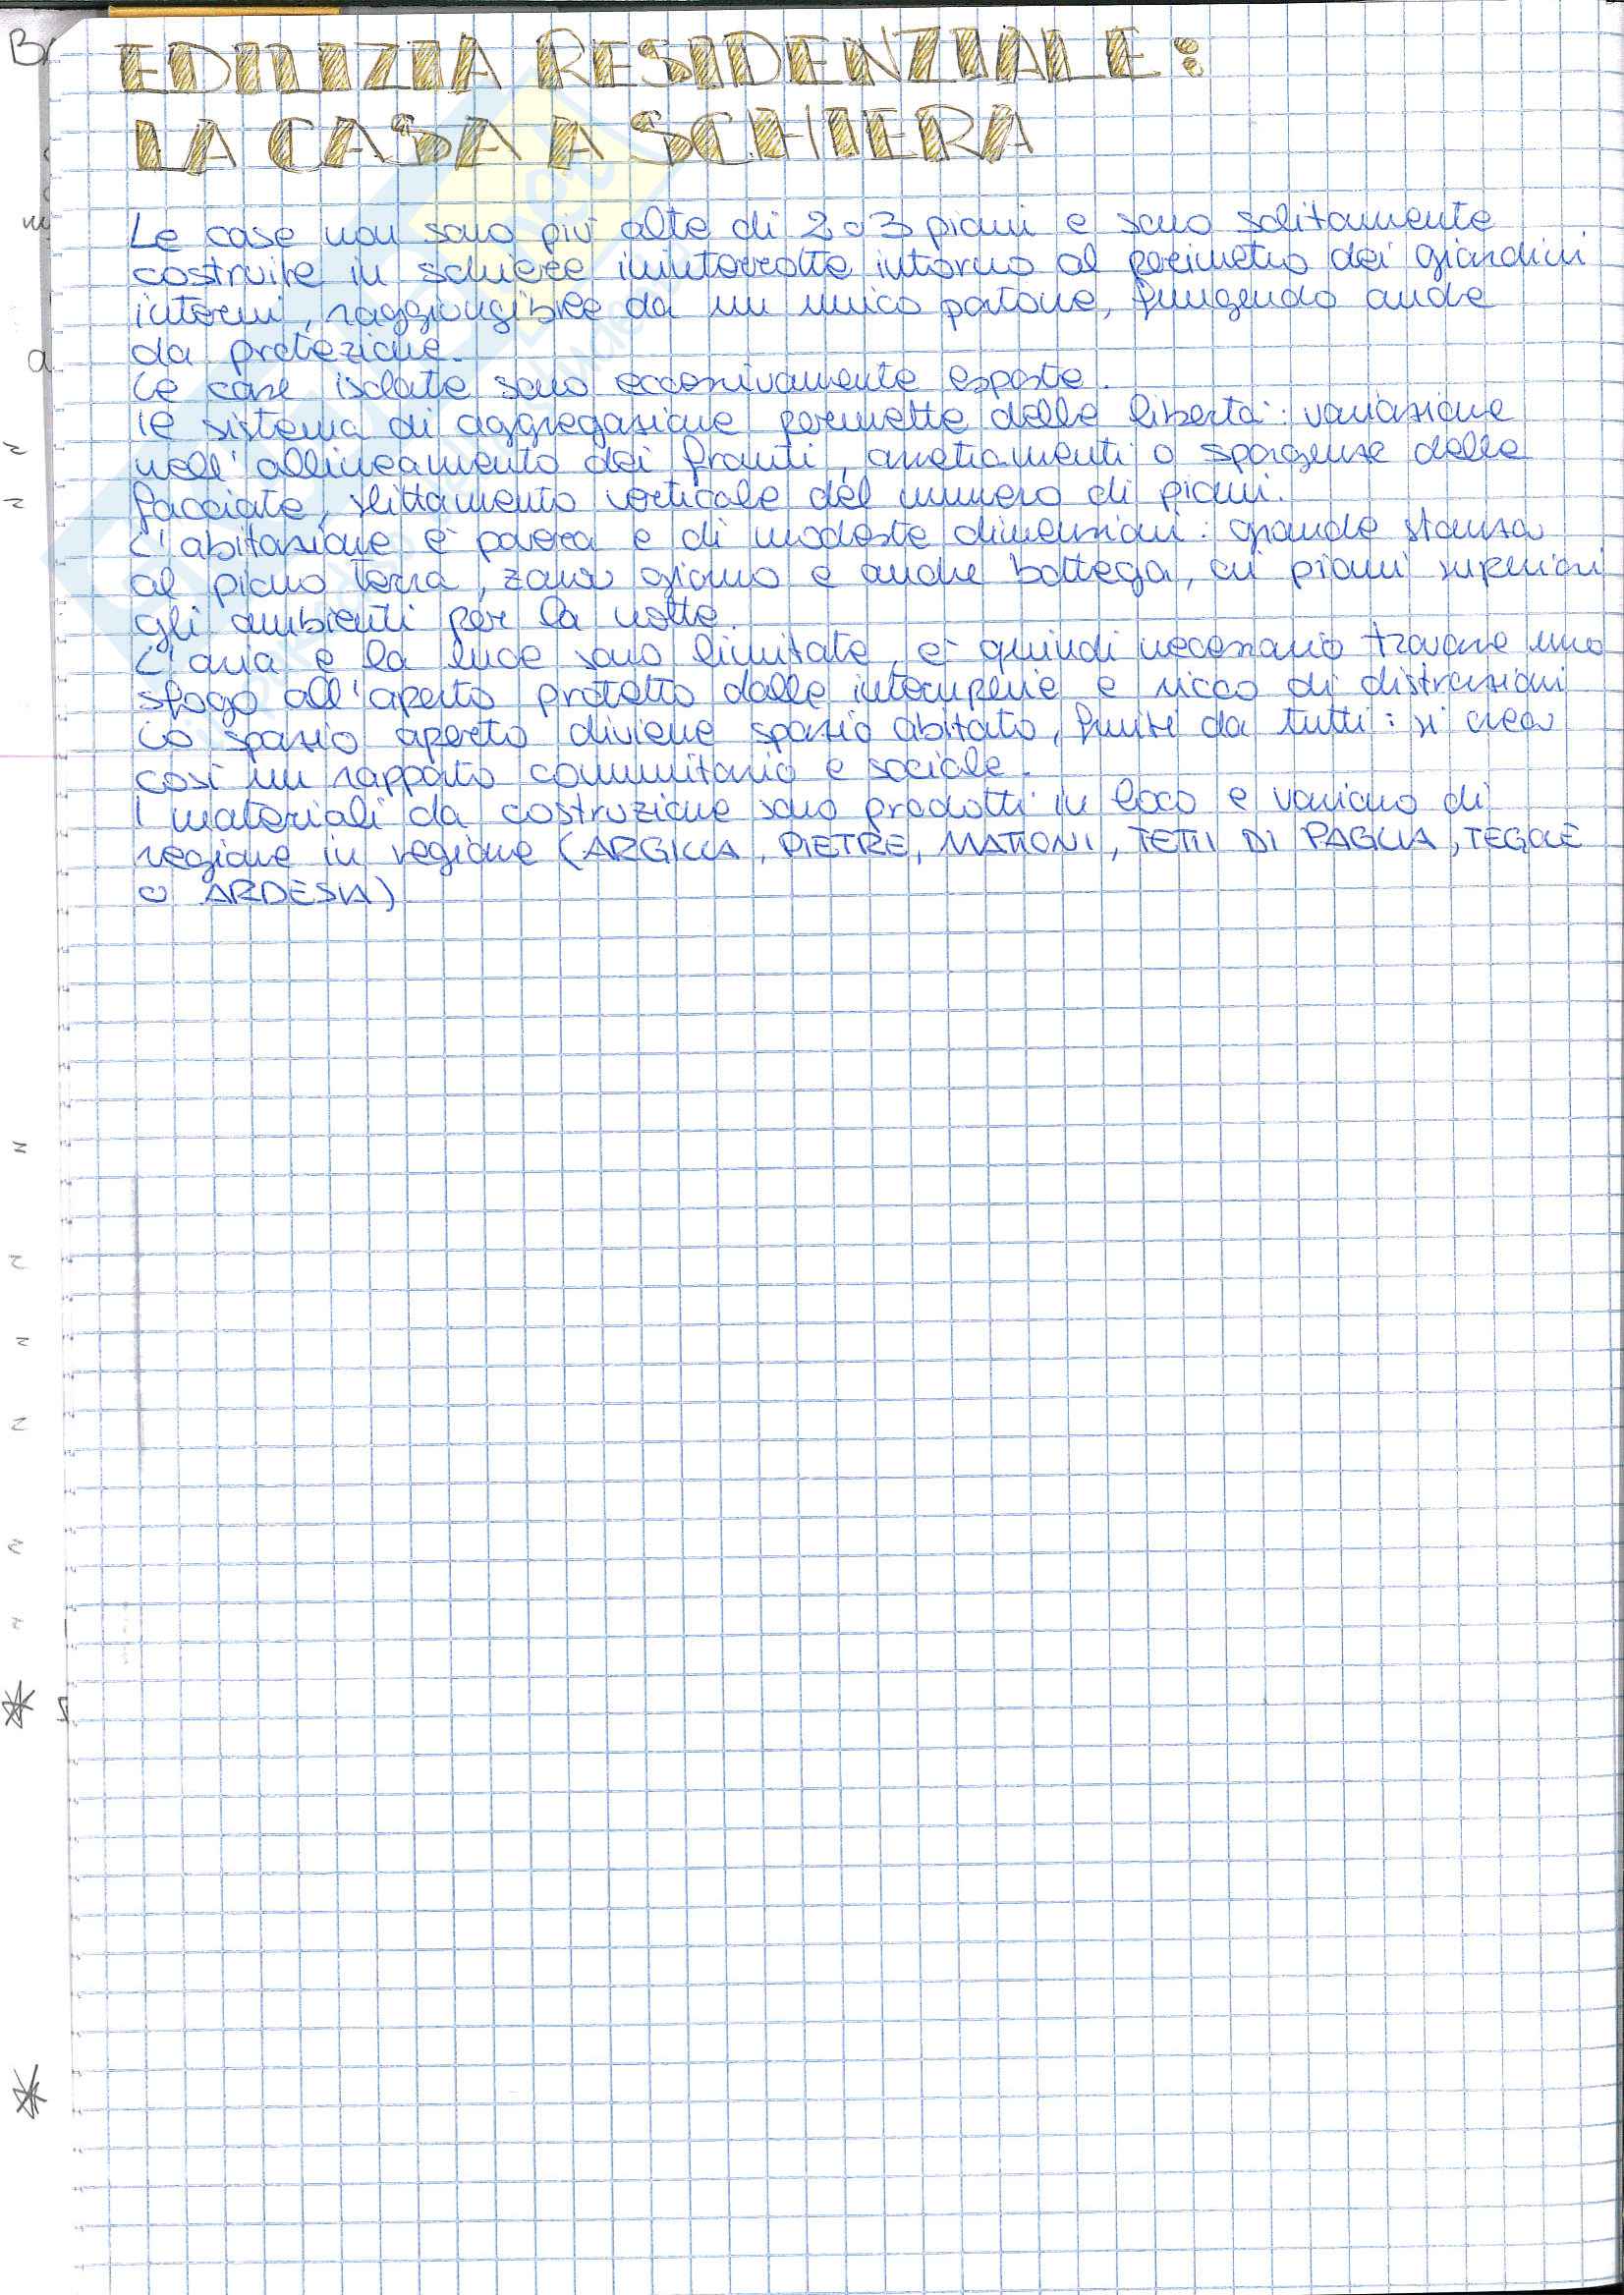 EDILIZIA RESIDENZIALE:
LA CASA A SCHIERA
Le case non sono più alte di 2 o 3 piani e sono solitamente
costruite in schiere ininterrotte intorno al perimetro dei giardini
interni, raggiungibile da un unico portone, fungendo anche
da protezione.
Le case isolate sono eccessivamente esposte.
Il sistema di aggregazione permette delle libertà: variazione
nell'allineamento dei fronti, arretramenti o sporgenze delle
facciate, slittamento verticale del numero di piani.
L'abitazione è povera e di modeste dimensioni: grande stanza
al piano terra, zona giorno e anche bottega, ai piani superiori
gli ambienti per la notte.
L'aria e la luce sono limitate, è quindi necessario trovare uno
sfogo all'aperto protetto dalle intemperie e ricco di distrazioni
Lo spazio aperto diviene spazio abitato, fruito da tutti: si crea
così un rapporto comunitario e sociale.
I materiali da costruzione sono prodotti in loco e variano di
regione in regione (ARGILLA, PIETRE, MATTONI, TETTI DI PAGLIA, TEGOLE
O ARDESIA)